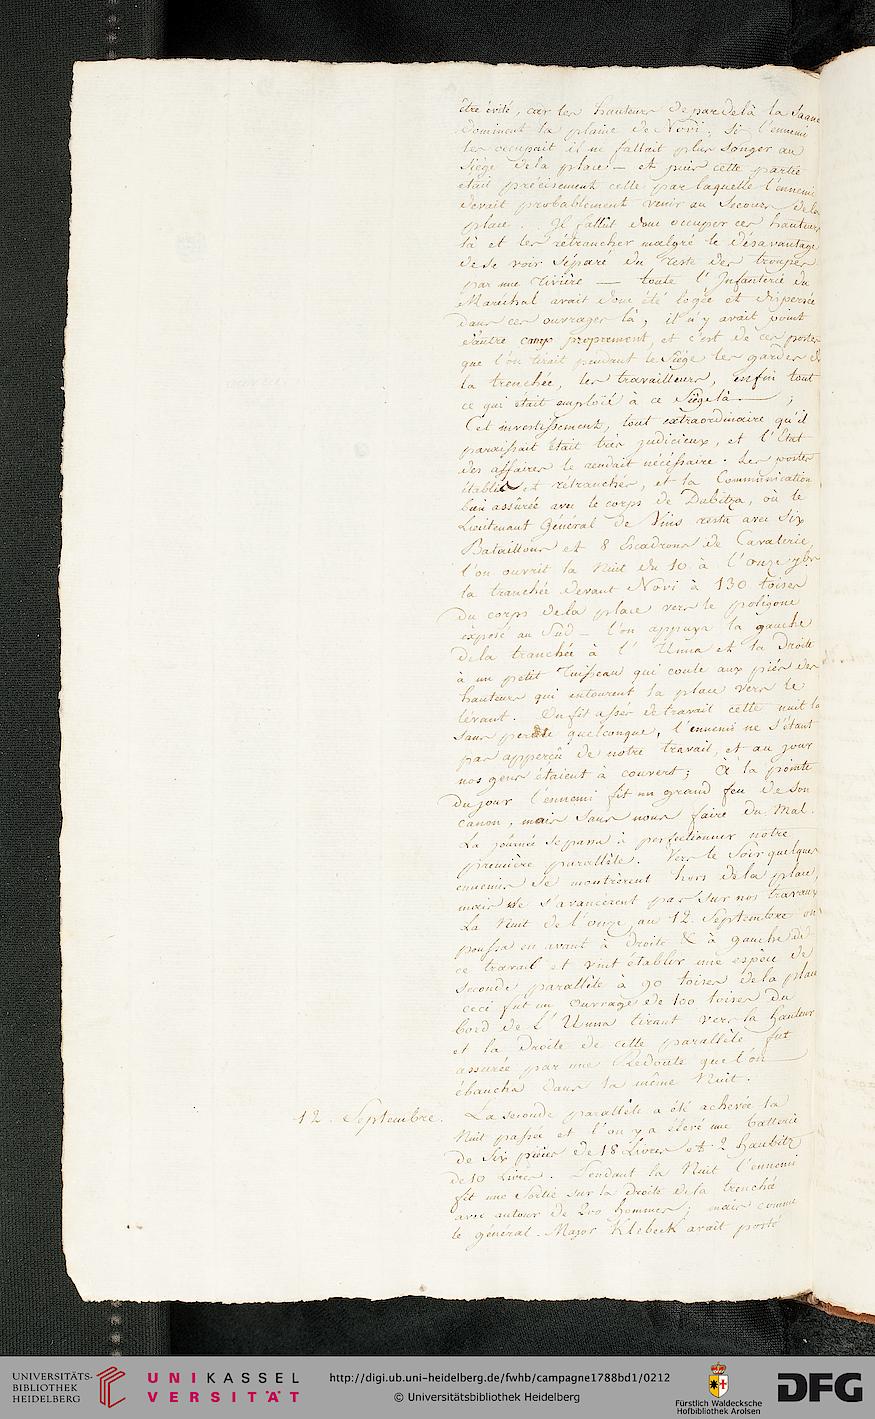 être évité, car les hauteurs de par delà la Saane
dominent la plaine de Novi. Si l'ennemi
les occupait il ne fallait plus songer au
siège dela place — et puis cette partie
était précisement celle par laquelle l'ennemi
devait probablement venir au Secours dela
place. Il fallût donc occuper ces hauteurs
là et les rétrancher malgré le désavantage
de se voir séparé du reste des troupes
par une rivière — toute l'Infanterie du
Maréchal avait donc été logée et dispersée
dans ces ouvrages là, il n'y avait point
d'autre camp proprement, et c'est de ces postes
que l'on tirait pendant le Siège les gardes de
la trenchée, les travailleurs, enfin tout
ce qui était emploïé à ce Siège là — ;
Cet investissement, tout extraordinaire qu'il
paraissait était très judicieux, et l'Etat
des affaires le rendait nécéssaire. Les postes
établis et rétranchés, et la Communication
bien assûrée avec le corps de Dubitza, où le
Lieutenant Général de Vins resta avec Six
Bataillons et 8 Escadrons de Cavalerie,
l'on ouvrit la Nuit du 10 à l'onze 7br
la tranchée devant Novi à 130 toises
du corps dela place vers le poligone
exposé au Sud — l'on appuya la gauche
dela tranchée à l'Unna et la Droite
à un petit ruisseau qui coule aux piés des
hauteurs qui entourent la place vers le
lévant. On fit assés de travail cette nuit la
sans perte quelconque, l'ennemi ne s'étant
pas apperçû de notre travail, et au jour
nos gens étaient à couvert; à la pointe
du jour l'ennemi fit un grand feu de son
canon, mais sans nous faire du Mal.
La journée se passa à perfectionner notre
première parallèle. Vers le Soir quelques
ennemis se montrèrent hors dela place,
mais ne s'avancerent pas sur nos travaux
La Nuit de l'onze au 12 Septembre on
poussa en avant à droite & à gauche de
ce travail et vint établir une espèce de
seconde parallèle à 90 toises dela place
ceci fut un Ouvrage de 100 toises du
bord de L'Unna tirant vers la hauteur
et la Droite de cette parallèle fut
assurée par une Redoute que l'on
ébaucha dans la même Nuit.
12. Septembre. La seconde parallèle a été achevée la
Nuit passée et l'on y a élevé une batterie
de Six pièces de 18 Livres et 2 haubitz
de 10 Livres. Pendant la Nuit l'ennemi
fit une Sortie sur la droite dela trenchée
avec autour de 200 hommes; mais comme
le général-Major Klebeck avait posté
UNIVERSITÄTS-
BIBLIOTHEK
HEIDELBERG
UNIKASSEL
VERSITÄT
http://digi.ub.uni-heidelberg.de/fwhb/campagne1788bd1/0212
© Universitätsbibliothek Heidelberg
Fürstlich Waldecksche
Hofbibliothek Arolsen
DFG